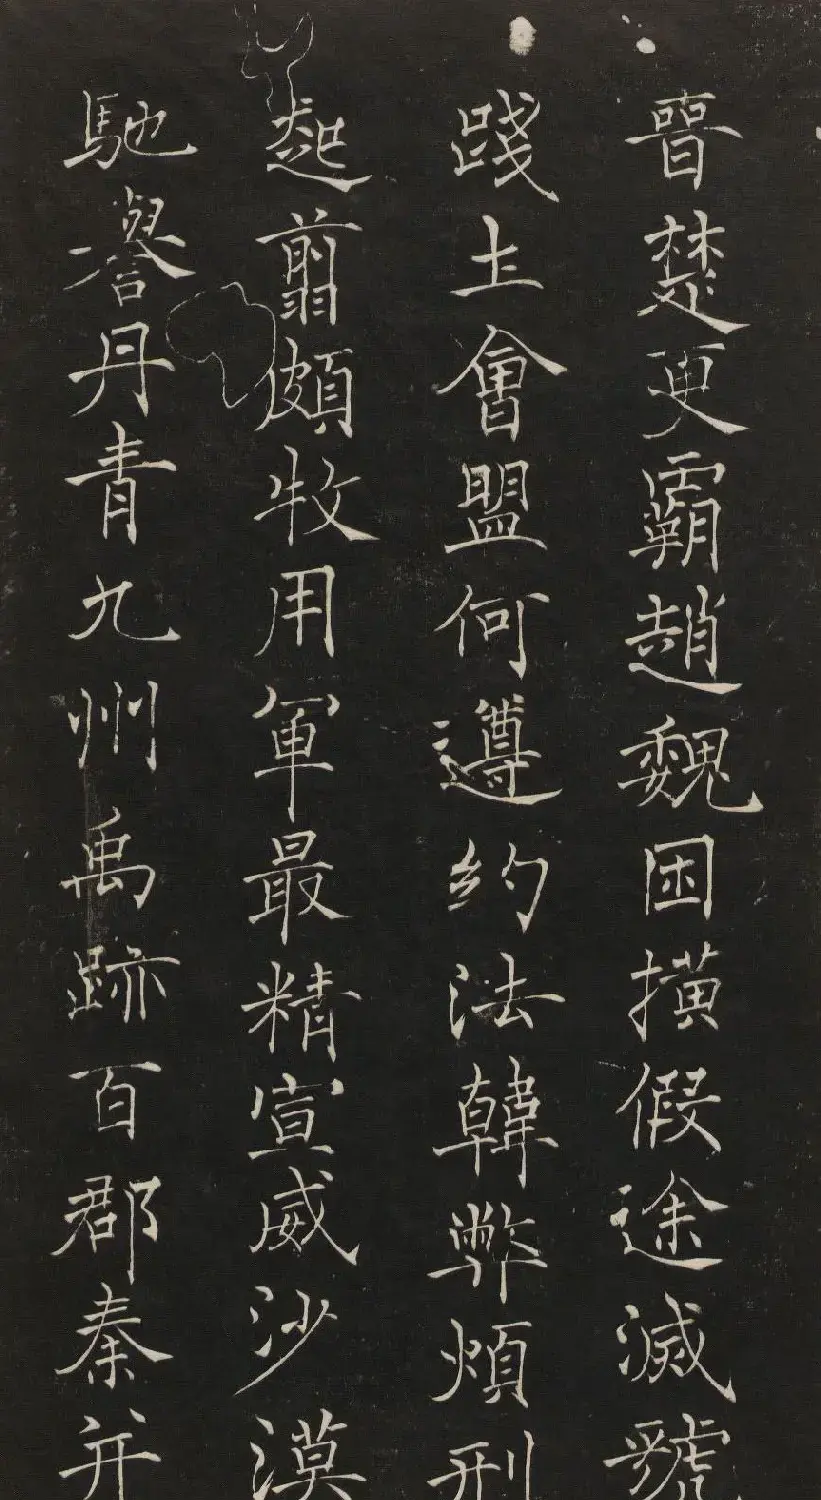 晉楚更霸趙魏困橫假途滅虢
踐土會盟何遵約法韓弊煩刑
起翦頗牧用軍最精宣威沙漠
馳譽丹青九州禹跡百郡秦并